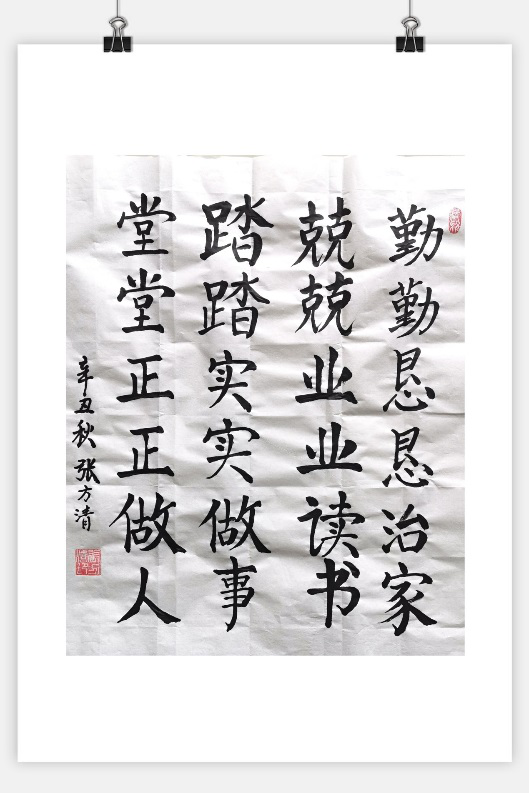 勤勤恳恳治家
兢兢业业读书
踏踏实实做事
堂堂正正做人
辛丑秋 张方清